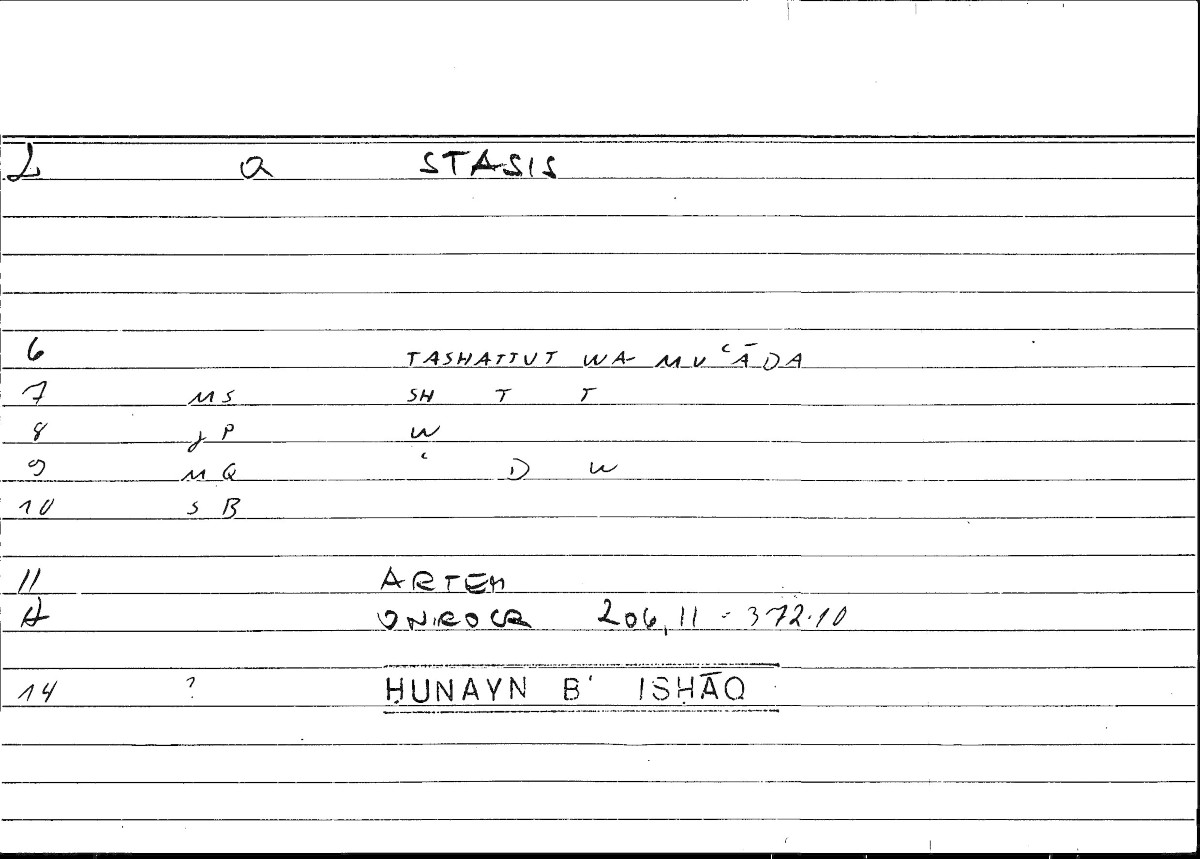 L a STASIS
6 TASHATTUT WA- MUʿĀDA
7 MS SH T T
8 JP W
9 MQ ʿ D W
10 SB
11 ARTEM
A ONIROCR 206,11 = 372.10
14 ? ḤUNAYN B' ISḤĀQ